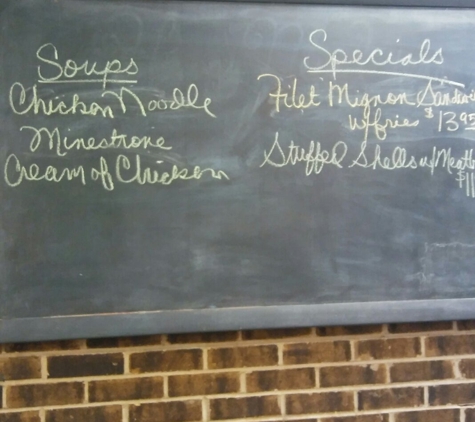 Soups
Chicken Noodle
Minestrone
Cream of Chicken
Specials
Filet Mignon Sandwi
w/fries $13.95
Stuffed Shells w/Meatb
$11